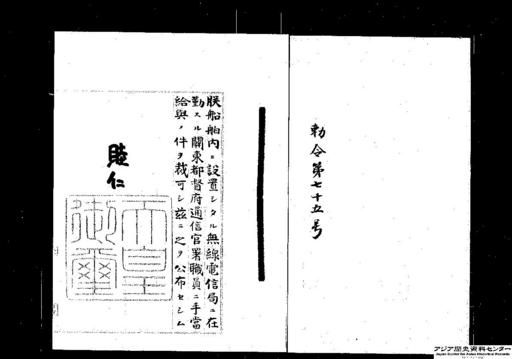 勅令第七十五号
朕船舶内ニ設置シタル無線電信局ニ在
勤スル關東都督府通信官署職員ニ手當
給與ノ件ヲ裁可シ茲ニ之ヲ公布セシム
睦仁
天皇
御璽
アジア歴史資料センター
Japan Center for Asian Historical Records